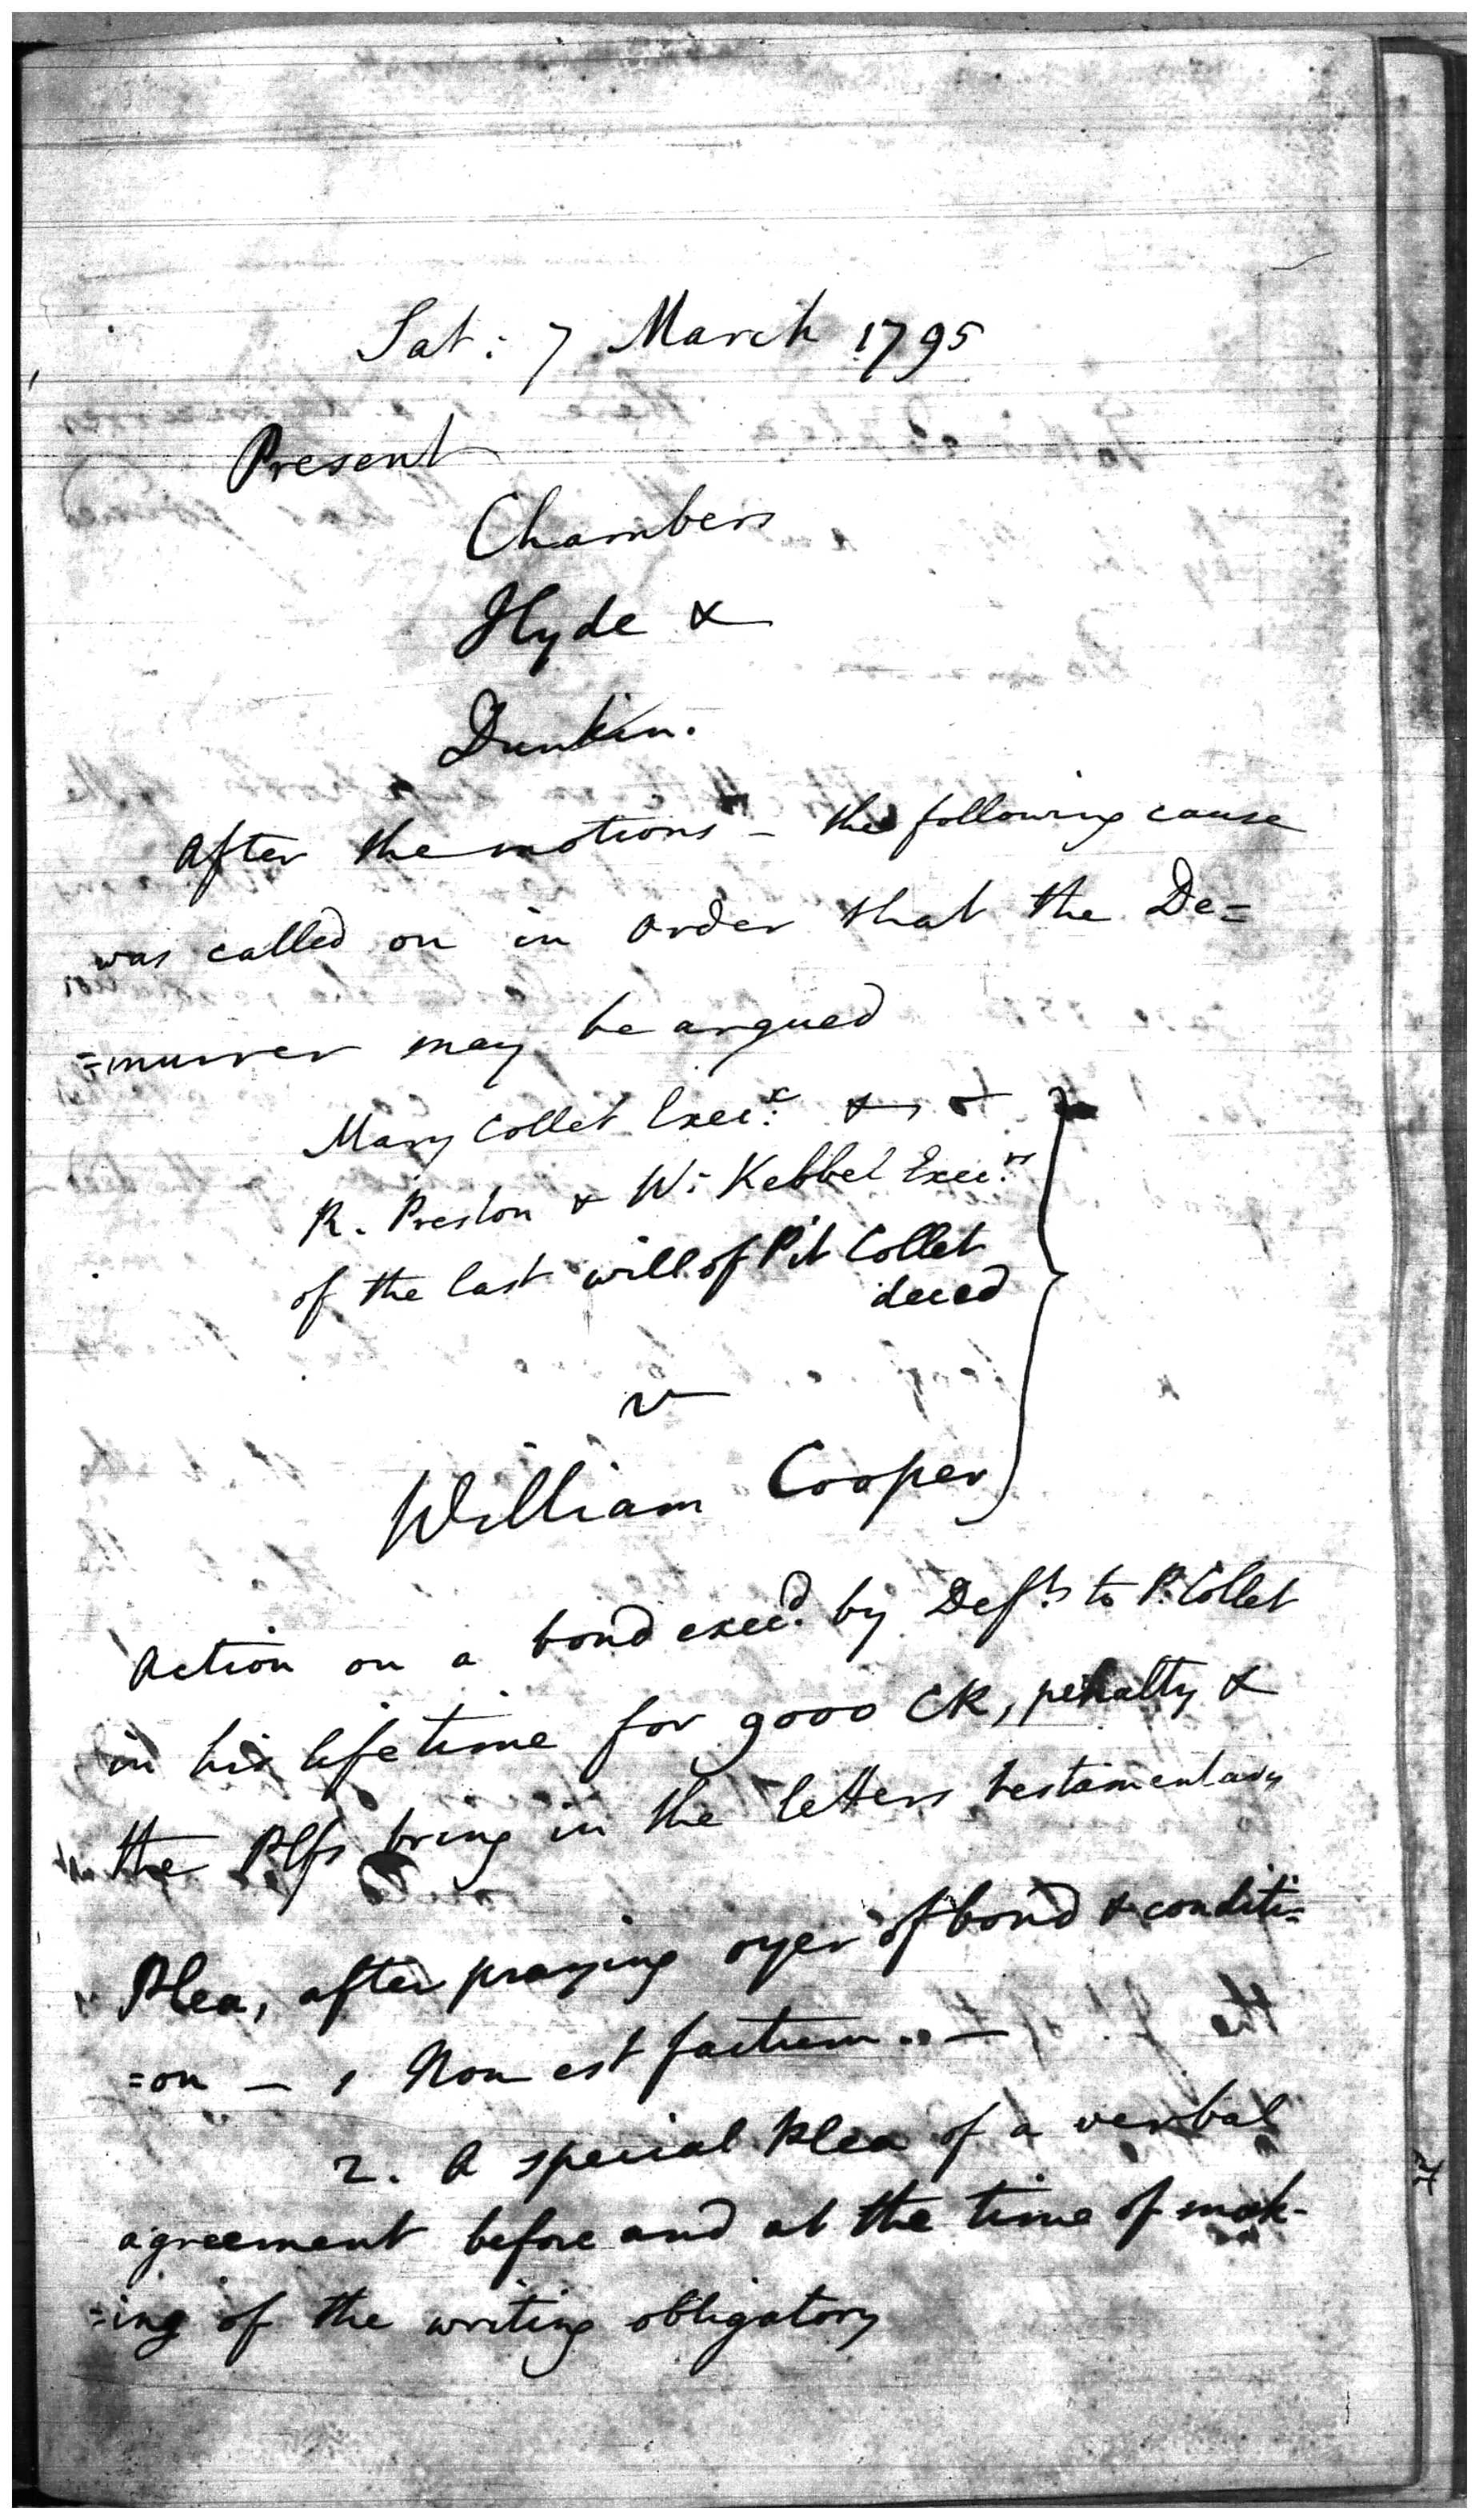 Sat: 7 March 1795
Present
Chambers
Hyde &
Dunkin.
After the motions – the following cause
was called on in order that the De=
=murrer may be argued
Mary Collet Execx. & &
R. Preston & Wm Kebbel Execrs
of the last will of Pit Collet
deced
v
William Cooper
Action on a bond execd. by Defts to P. Collet
in his life time for 9000 CR, penalty &
the Plfs bring in the letters testamentary
Plea, after praying oyer of bond & conditi=
=on – 1 Non est factum.. –
2. A special Plea of a verbal
agreement before and at the time of mak-
=ing of the writing obligatory